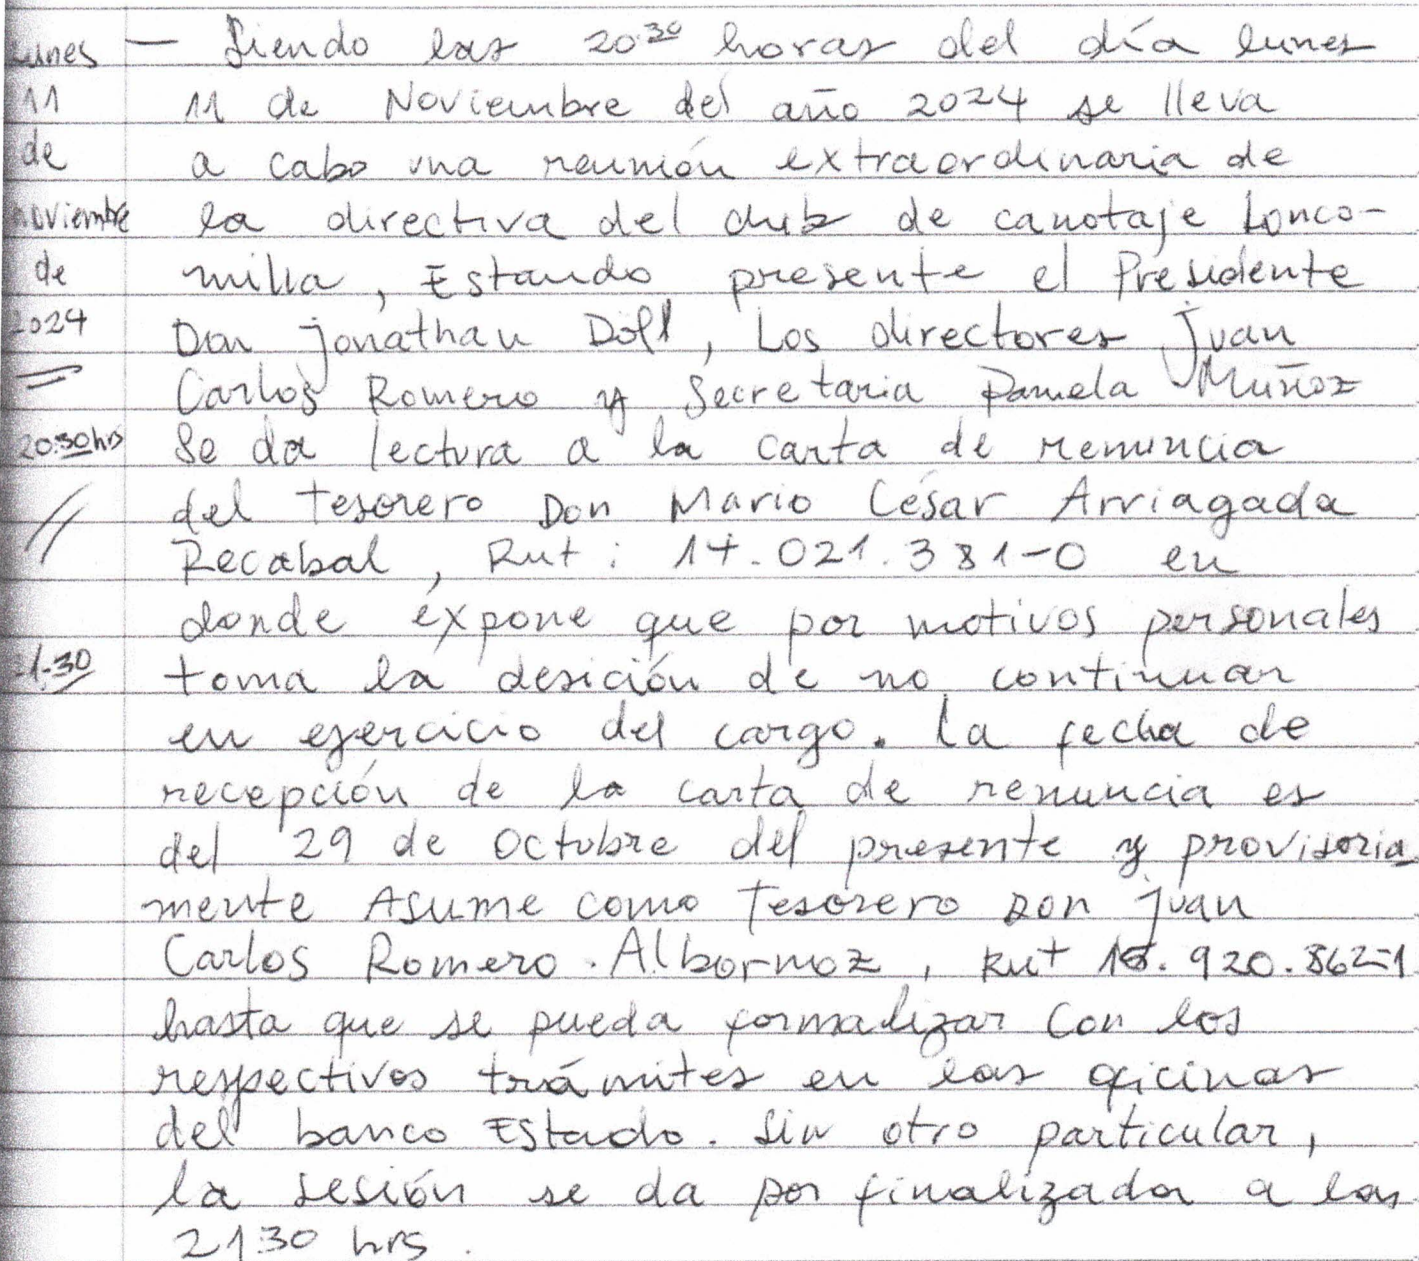 lunes — Siendo las 20:30 horas del día lunes
11 11 de Noviembre del año 2024 se lleva
de a cabo una reunión extraordinaria de
noviembre la directiva del club de canotaje Lonco-
de milla, Estando presente el Presidente
2024 Don jonathan Doll, Los directores Juan
Carlos Romero y Secretaria Pamela Muñoz
20:30 hrs Se da lectura a la carta de renuncia
del tesorero Don Mario César Arriagada
Recabal, Rut: 17.021.381-0 en
donde expone que por motivos personales
1:30 toma la desición de no continuar
en ejercicio del cargo. La fecha de
recepción de la carta de renuncia es
del 29 de Octubre del presente y provisoria
mente Asume como Tesorero Don Juan
Carlos Romero Albornoz, Rut 16.920.862-1
hasta que se pueda formalizar con los
respectivos trámites en las oficinas
del banco Estado. Sin otro particular,
la sesión se da por finalizada a las
21:30 hrs.